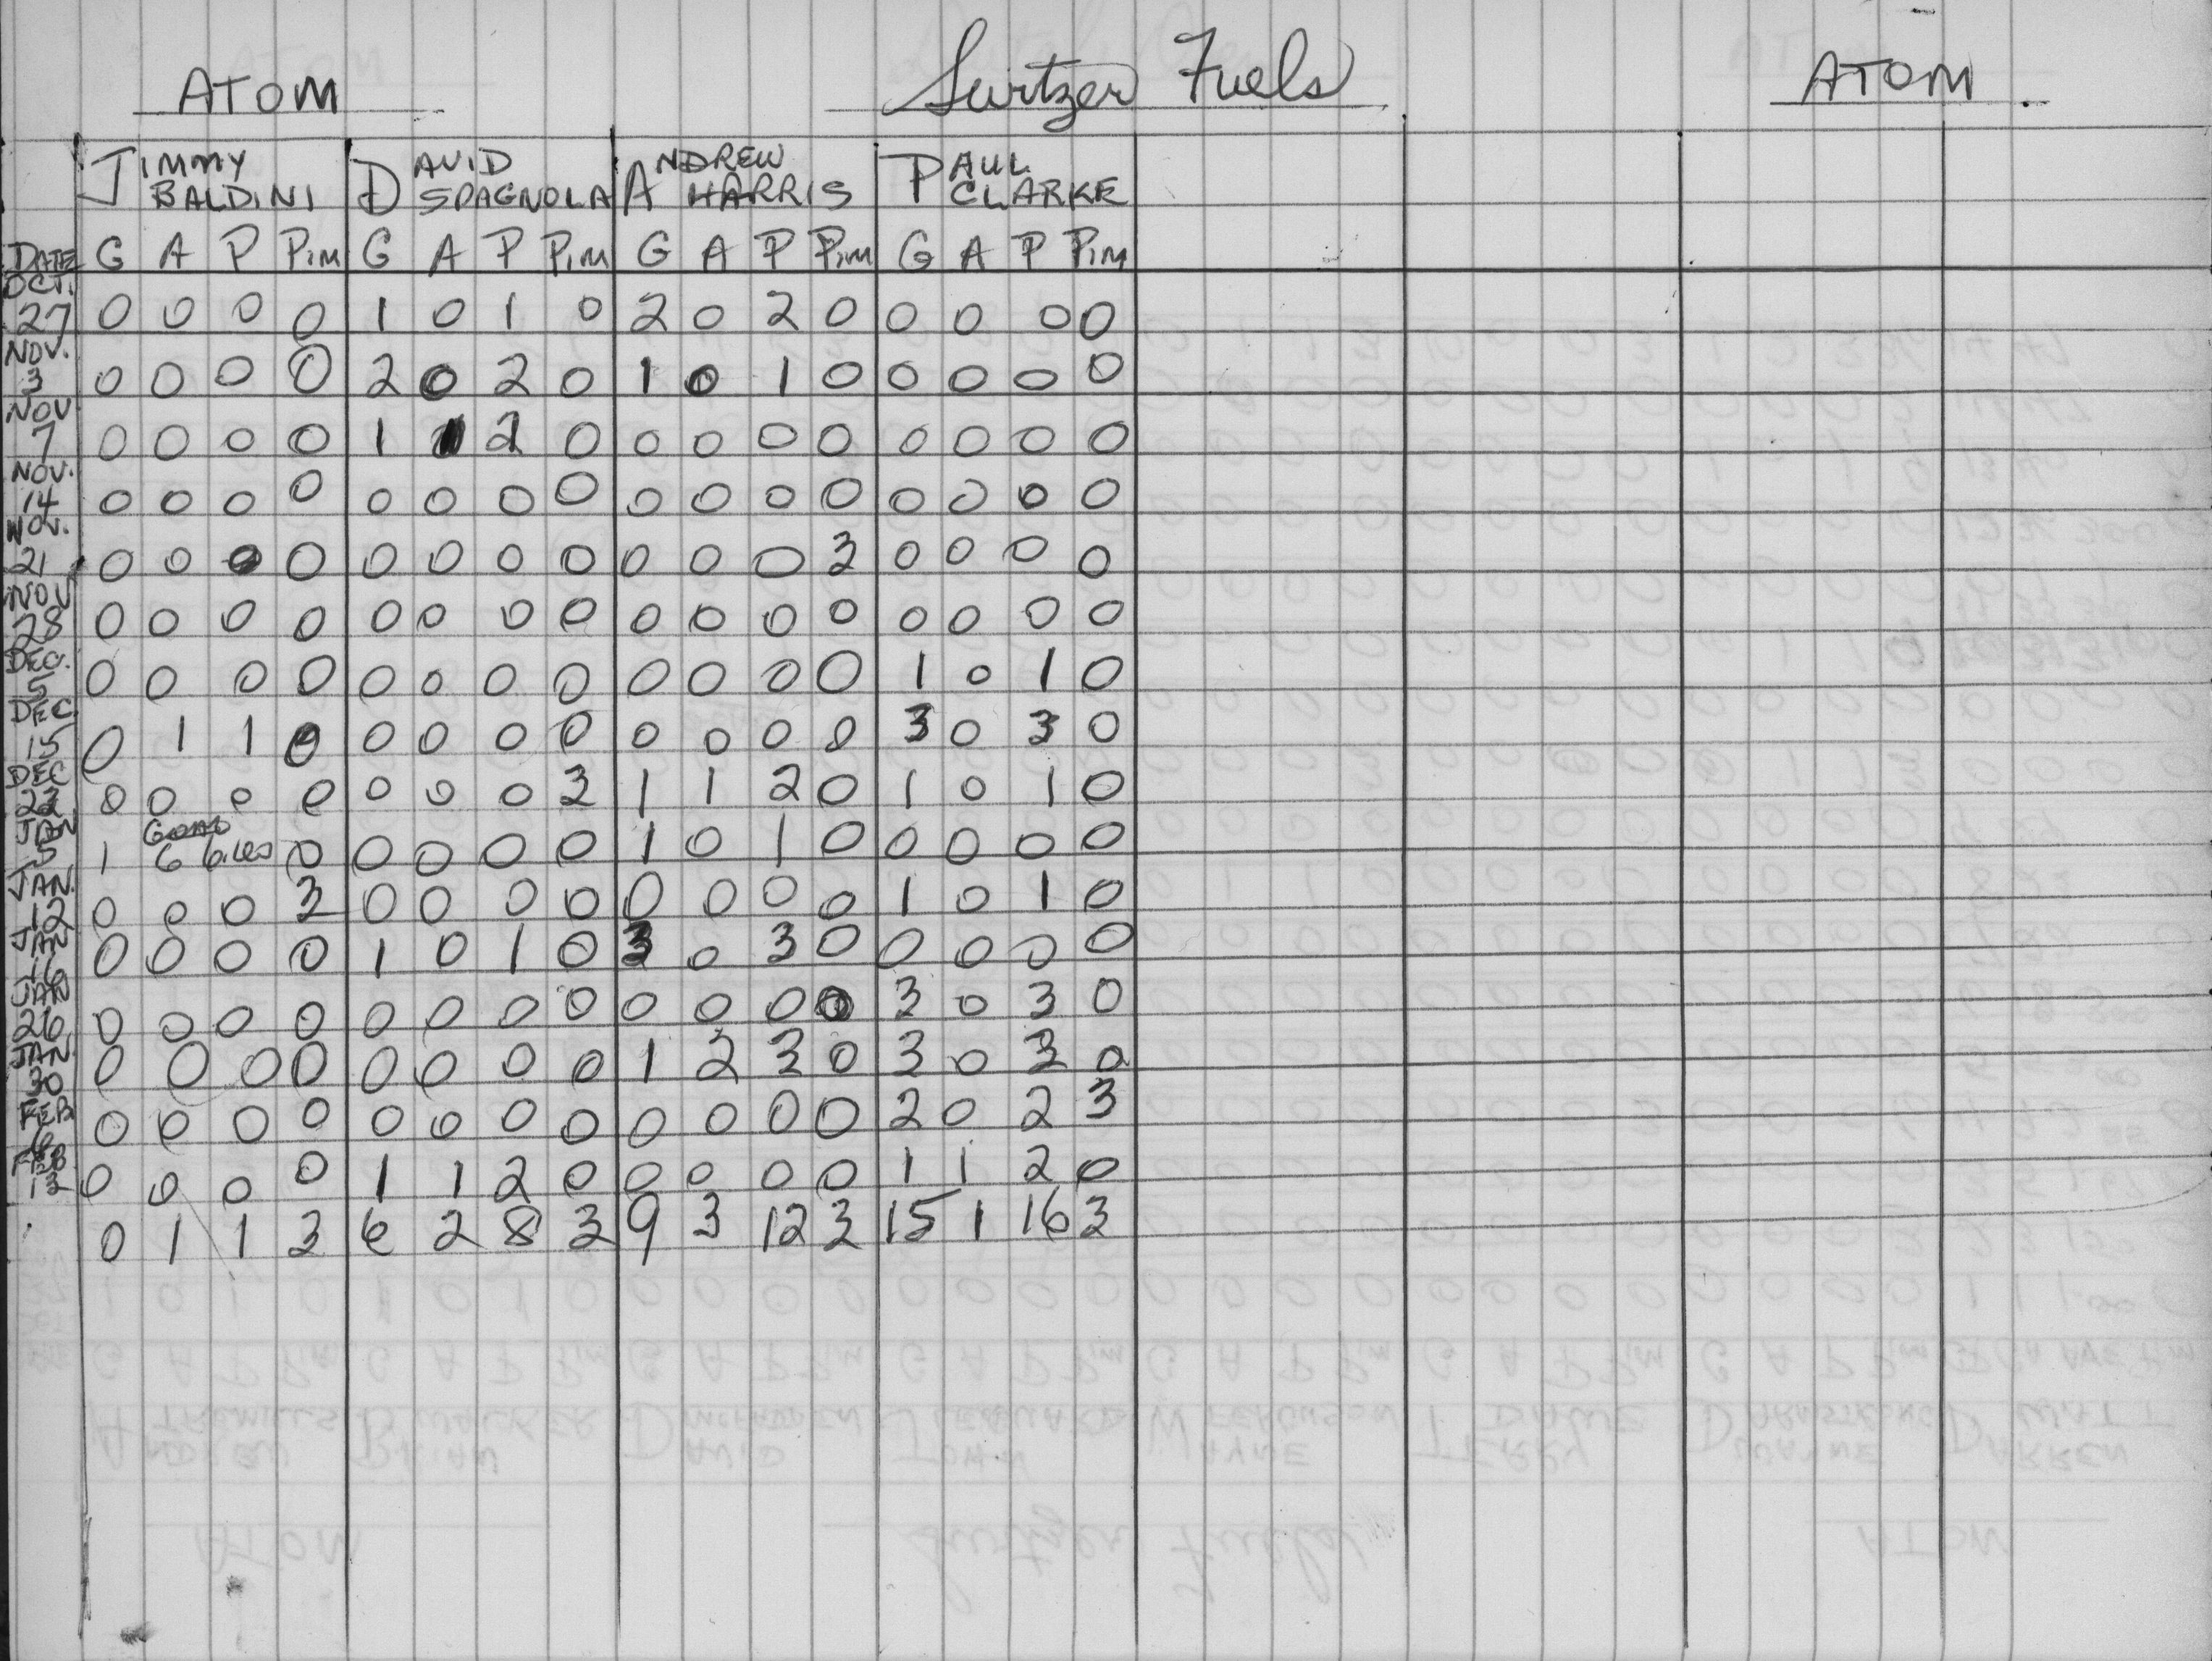 ATOM Surtzer Fuels ATOM
JIMMY BALDINI DAVID SPAGNOLA ANDREW HARRIS PAUL CLARKE
DATE G A P Pim G A P Pim G A P Pim G A P Pim
OCT. 27 0 0 0 0 1 0 1 0 2 0 2 0 0 0 0 0
NOV. 3 0 0 0 0 2 0 2 0 1 0 1 0 0 0 0 0
NOV 7 0 0 0 0 1 1 2 0 0 0 0 0 0 0 0 0
NOV. 14 0 0 0 0 0 0 0 0 0 0 0 0 0 0 0 0
NOV. 21 0 0 0 0 0 0 0 0 0 0 0 3 0 0 0 0
NOV 28 0 0 0 0 0 0 0 0 0 0 0 0 0 0 0 0
DEC. 5 0 0 0 0 0 0 0 0 0 0 0 0 1 0 1 0
DEC. 15 0 1 1 0 0 0 0 0 0 0 0 0 3 0 3 0
DEC 22 0 0 0 0 0 0 0 3 1 1 2 0 1 0 1 0
JAN 5 1 Game 6 0 0 0 0 0 1 0 1 0 0 0 0 0
JAN. 12 0 0 0 3 0 0 0 0 0 0 0 0 1 0 1 0
JAN 16 0 0 0 0 1 0 1 0 3 0 3 0 0 0 0 0
JAN 26 0 0 0 0 0 0 0 0 0 0 0 0 3 0 3 0
JAN. 30 0 0 0 0 0 0 0 0 1 2 3 0 3 0 3 0
FEB 6 0 0 0 0 0 0 0 0 0 0 0 0 2 0 2 3
FEB 13 0 0 0 0 1 1 2 0 0 0 0 0 1 1 2 0
0 1 1 3 6 2 8 3 9 3 12 3 15 1 16 3